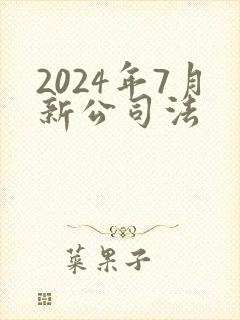 2024年7月
新公司法
菜果子